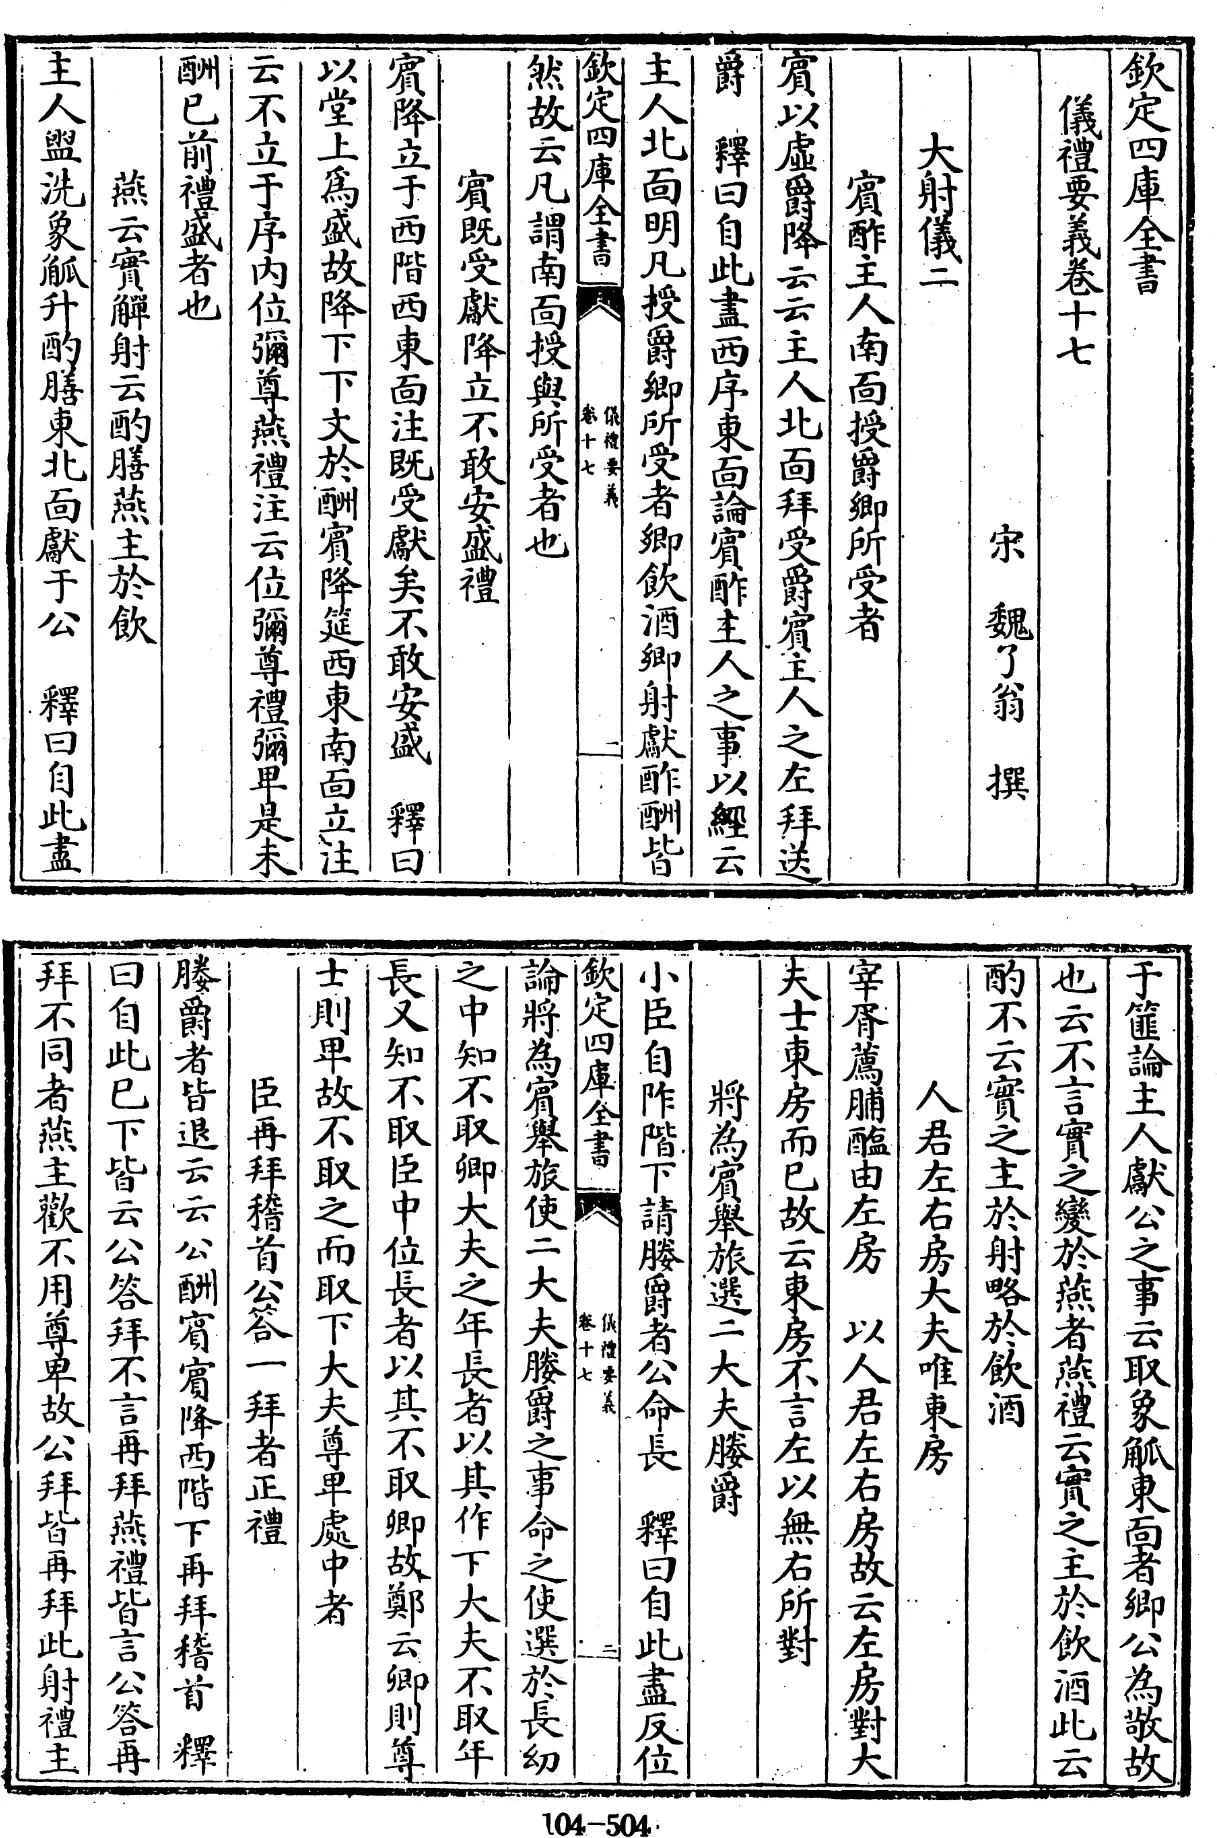 欽定四庫全書
儀禮要義卷十七
宋 魏了翁 撰
大射儀二
賓酢主人南面授爵鄉所受者
賓以虛爵降云云主人北面拜受爵賓主人之左拜送
爵 釋曰自此盡西序東面論賓酢主人之事以經云
主人北面明凡授爵鄉所受者鄉飲酒鄉射獻酢酬皆
欽定四庫全書 儀禮要義 卷十七 一
然故云凡謂南面授與所受者也
賓既受獻降立不敢安盛禮
賓降立于西階西東面注既受獻矣不敢安盛 釋曰
以堂上為盛故降下下文於酬賓降筵西東南面立注
云不立于序內位彌尊燕禮注云位彌尊禮彌卑是未
酬已前禮盛者也
燕云實觶射云酌膳燕主於飲
主人盥洗象觚升酌膳東北面獻于公 釋曰自此盡
于篚論主人獻公之事云取象觚東面者鄉公為敬故
也云不言實之變於燕者燕禮云實之主於飲酒此云
酌不云實之主於射略於飲酒
人君左右房大夫唯東房
宰胥薦脯醢由左房 以人君左右房故云左房對大
夫士東房而已故云東房不言左以無右所對
將為賓舉旅選二大夫媵爵
小臣自阼階下請媵爵者公命長 釋曰自此盡反位
欽定四庫全書 儀禮要義 卷十七 二
論將為賓舉旅使二大夫媵爵之事命之使選於長幼
之中知不取卿大夫之年長者以其作下大夫不取年
長又知不取臣中位長者以其不取卿故鄭云卿則尊
士則卑故不取之而取下大夫尊卑處中者
臣再拜稽首公答一拜者正禮
媵爵者皆退云云公酬賓賓降西階下再拜稽首 釋
曰自此已下皆云公答拜不言再拜燕禮皆言公答再
拜不同者燕主歡不用尊卑故公拜皆再拜此射禮主
104-504